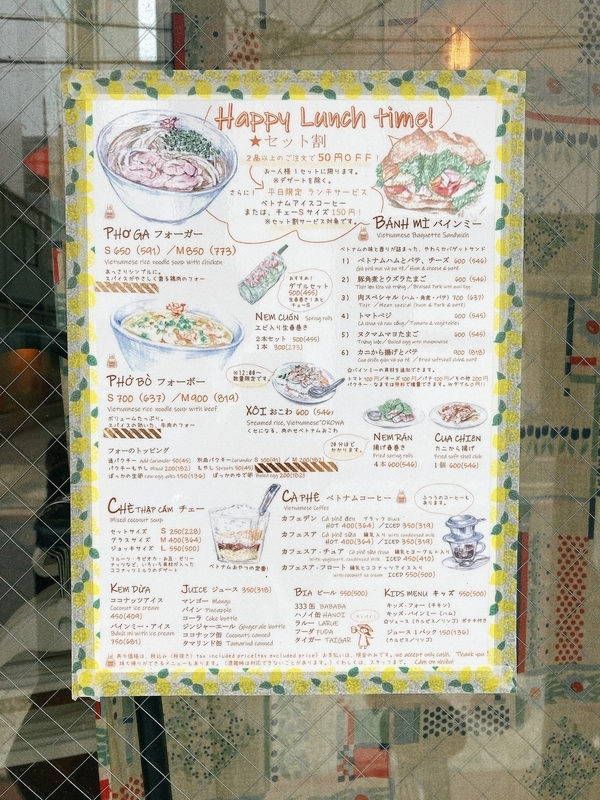 Happy Lunch time!
★セット割
2品以上のご注文で50円OFF!
お一人様1セットに限ります。
※デザートを除く。
さらに!
平日限定 ランチサービス
ベトナムアイスコーヒー
または、チェーSサイズ150円!
※セット割サービス対象です。
PHỞ GÀ フォーガー
S 650 (591) / M 850 (773)
Vietnamese rice noodle soup with chicken
あっさりシンプルに。
スパイスがやさしく香る鶏肉のフォー
PHỞ BÒ フォーボー
S 700 (637) / M 900 (819)
Vietnamese rice noodle soup with beef
ボリュームたっぷり。
スパイスの効いた、牛肉のフォー
フォーのトッピング
追パクチー Add Coriander 50(45)
パクチーもやし Mixed 200(182)
もやし Sprouts 50(45)
S 100(91) / M 200(182)
おすすめ!
ダブルセット
500(455)
生春巻き1本と
チェーS
NEM CUỐN Spring rolls
エビ入り生春巻き
2本セット 500(455)
1本 300(273)
※12:00〜
数量限定です。
XÔI おこわ 600 (546)
Steamed rice, Vietnamese"OKOWA
くせになる、肉のせベトナムおこわ
BÁNH MÌ バインミー
Vietnamese Baguette Sandwich
ベトナムの味と香りが詰まった、やわらかバゲットサンド
1) ベトナムハムとパテ、チーズ 600 (546)
2) 豚角煮とウズラたまご 600 (546)
3) 肉スペシャル (ハム・角煮・パテ) 700 (637)
4) トマベジ 600 (545)
5) ヌクマムマヨたまご 600 (546)
6) カニから揚げとパテ 900 (818)
20分ほど
かかります。
NEM RÁN
揚げ春巻き
Fried spring rolls
4本 600(546)
CUA CHIÊN
カニから揚げ
Fried soft shell crab
1個 600(546)
CHÈ THẬP CẨM チェー
Mixed coconut soup
セットサイズ S 250(228)
グラスサイズ M 400(364)
ジョッキサイズ L 550(500)
フルーツ・タピオカ・お豆・ゼリー
ナッツなど、いろいろ素材が入った
ココナッツミルクのデザート
ベトナムおやつの定番!
CÀ PHÊ ベトナムコーヒー
Vietnamese Coffee
ふつうのコーヒーも
あります。
カフェデン Cà phê đen ブラック Black
HOT 400(364) / ICED 350(319)
カフェスア Cà phê sữa 練乳入り with condensed milk
HOT 400(364) / ICED 350(319)
カフェスア・チュア Cà phê sữa chua 練乳とヨーグルト入り
with yoghurt, condensed milk ICED 450(410)
カフェスア・フロート 練乳とココナッツアイス入り
with coconut ice cream ICED 550(500)
KEM DỪA
ココナッツアイス
Coconut ice cream
450(409)
バインミー・アイス
Bánh mì with ice cream
750(681)
JUICE ジュース 350(318)
マンゴー Mango
パイン Pineapple
コーラ Coke bottle
ジンジャーエール Ginger ale bottle
ココナッツ缶 Coconuts canned
タマリンド缶 Tamarind canned
BIA ビール 550(500)
333缶 BABABA
ハノイ缶 HANOI
ラルー LARUE
フーダ HUDA
タイガー TAIGAR
KIDS MENU キッズ 550(500)
キッズ・フォー (チキン)
キッズ・バインミー (ハム)
ジュース1パック 150(136)
(カルピス/リンゴ)
表示価格は、税込み (税抜き) tax included price(tax excluded price) お支払いは、現金のみです。 we accept only cash. Thank you!
持ち帰りができるメニューもあります。(混雑時は対応できないことがあります。) くわしくは、スタッフまで。 Cảm ơn nhiều!